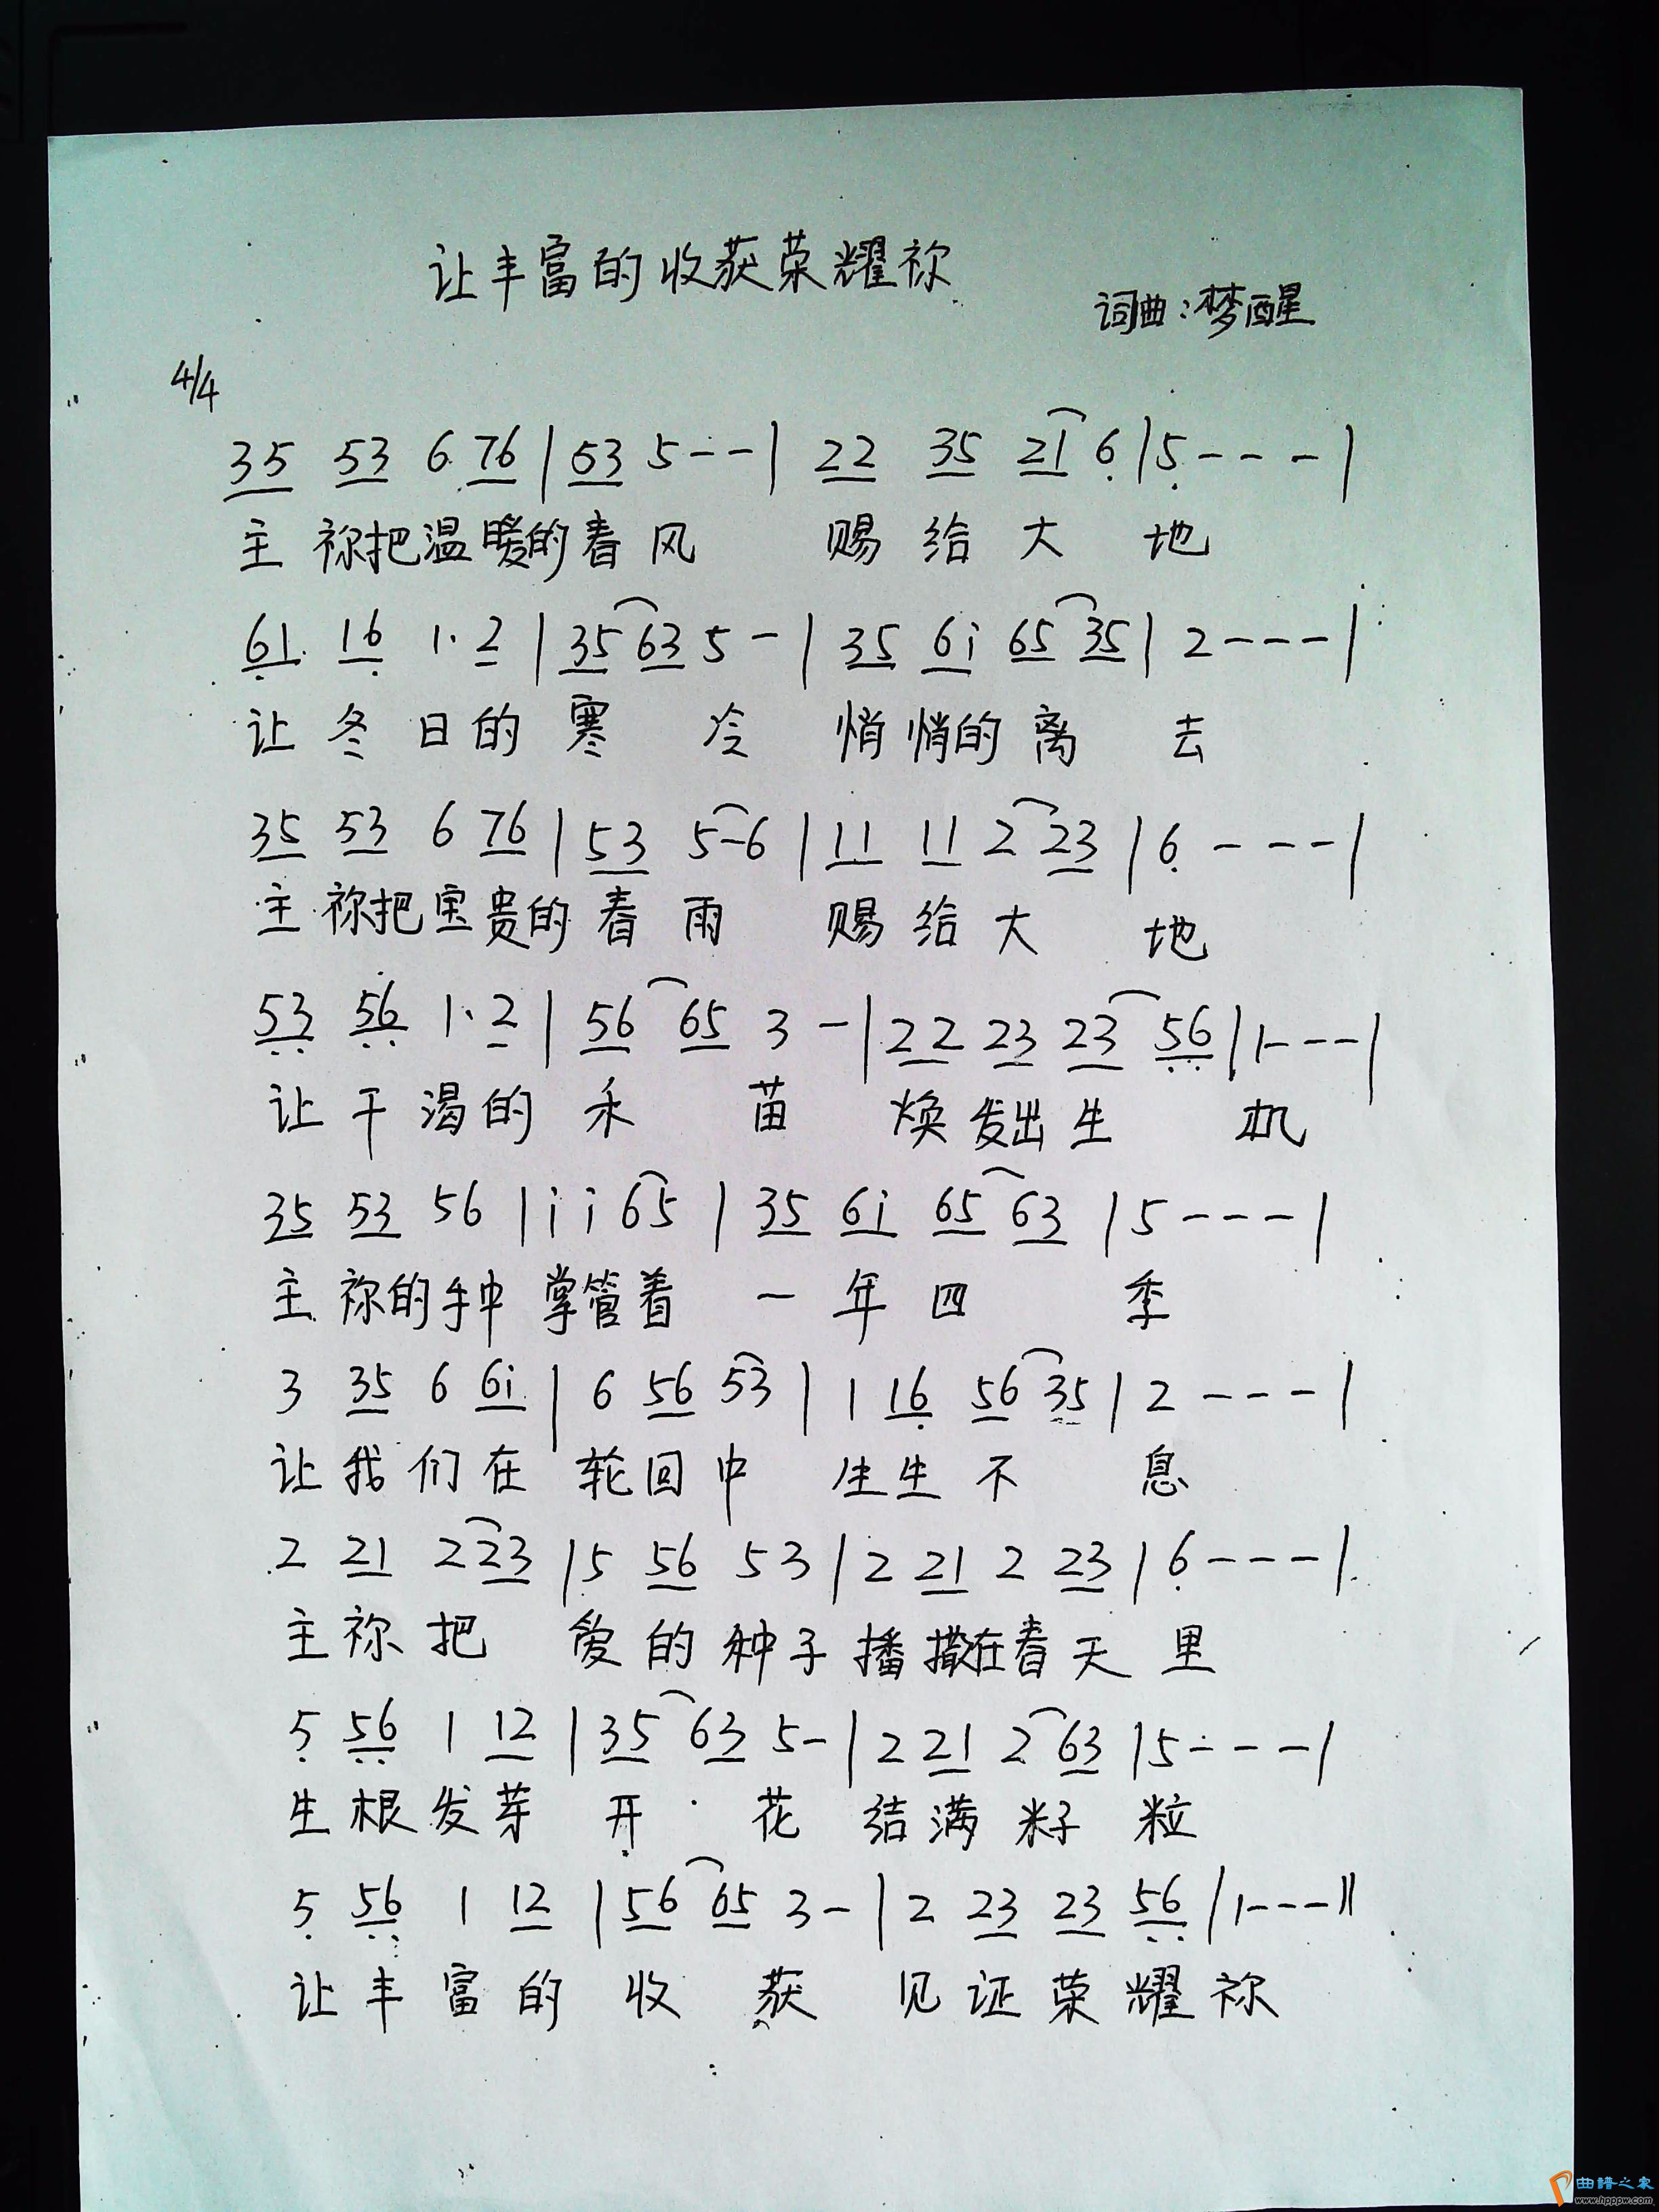 让丰富的收获荣耀祢
词曲:梦醒
4/4
35 53 6 76 | 53 5 - - | 22 35 21 6̣ | 5̣ - - - |
主祢把温暖的春风 赐给大地
6̣1 16̣ 1· 2 | 35 63 5 - | 35 6i 65 35 | 2 - - - |
让冬日的寒冷 悄悄的离去
35 53 6 76 | 53 5 - 6 | 11 11 2 23 | 6̣ - - - |
主祢把宝贵的春雨 赐给大地
5̣3̣ 5̣6̣ 1· 2 | 56 65 3 - | 22 23 23 5̣6̣ | 1 - - - |
让干渴的禾苗 焕发出生机
35 53 56 | i i 65 | 35 6i 65 63 | 5 - - - |
主祢的手中掌管着 一年四季
3 35 6 6i | 6 56 53 | 1 16̣ 56 35 | 2 - - - |
让我们在轮回中 生生不息
2 21 2 23 | 5 56 53 | 2 21 2 23 | 6̣ - - - |
主祢把爱的种子播撒在春天里
5̣ 5̣6̣ 1 12 | 35 63 5 - | 2 21 2 63 | 5 - - - |
生根发芽开花 结满籽粒
5̣ 5̣6̣ 1 12 | 56 65 3 - | 2 23 23 5̣6̣ | 1 - - - ‖
让丰富的收获 见证荣耀祢
曲谱之家
www.hppw.com